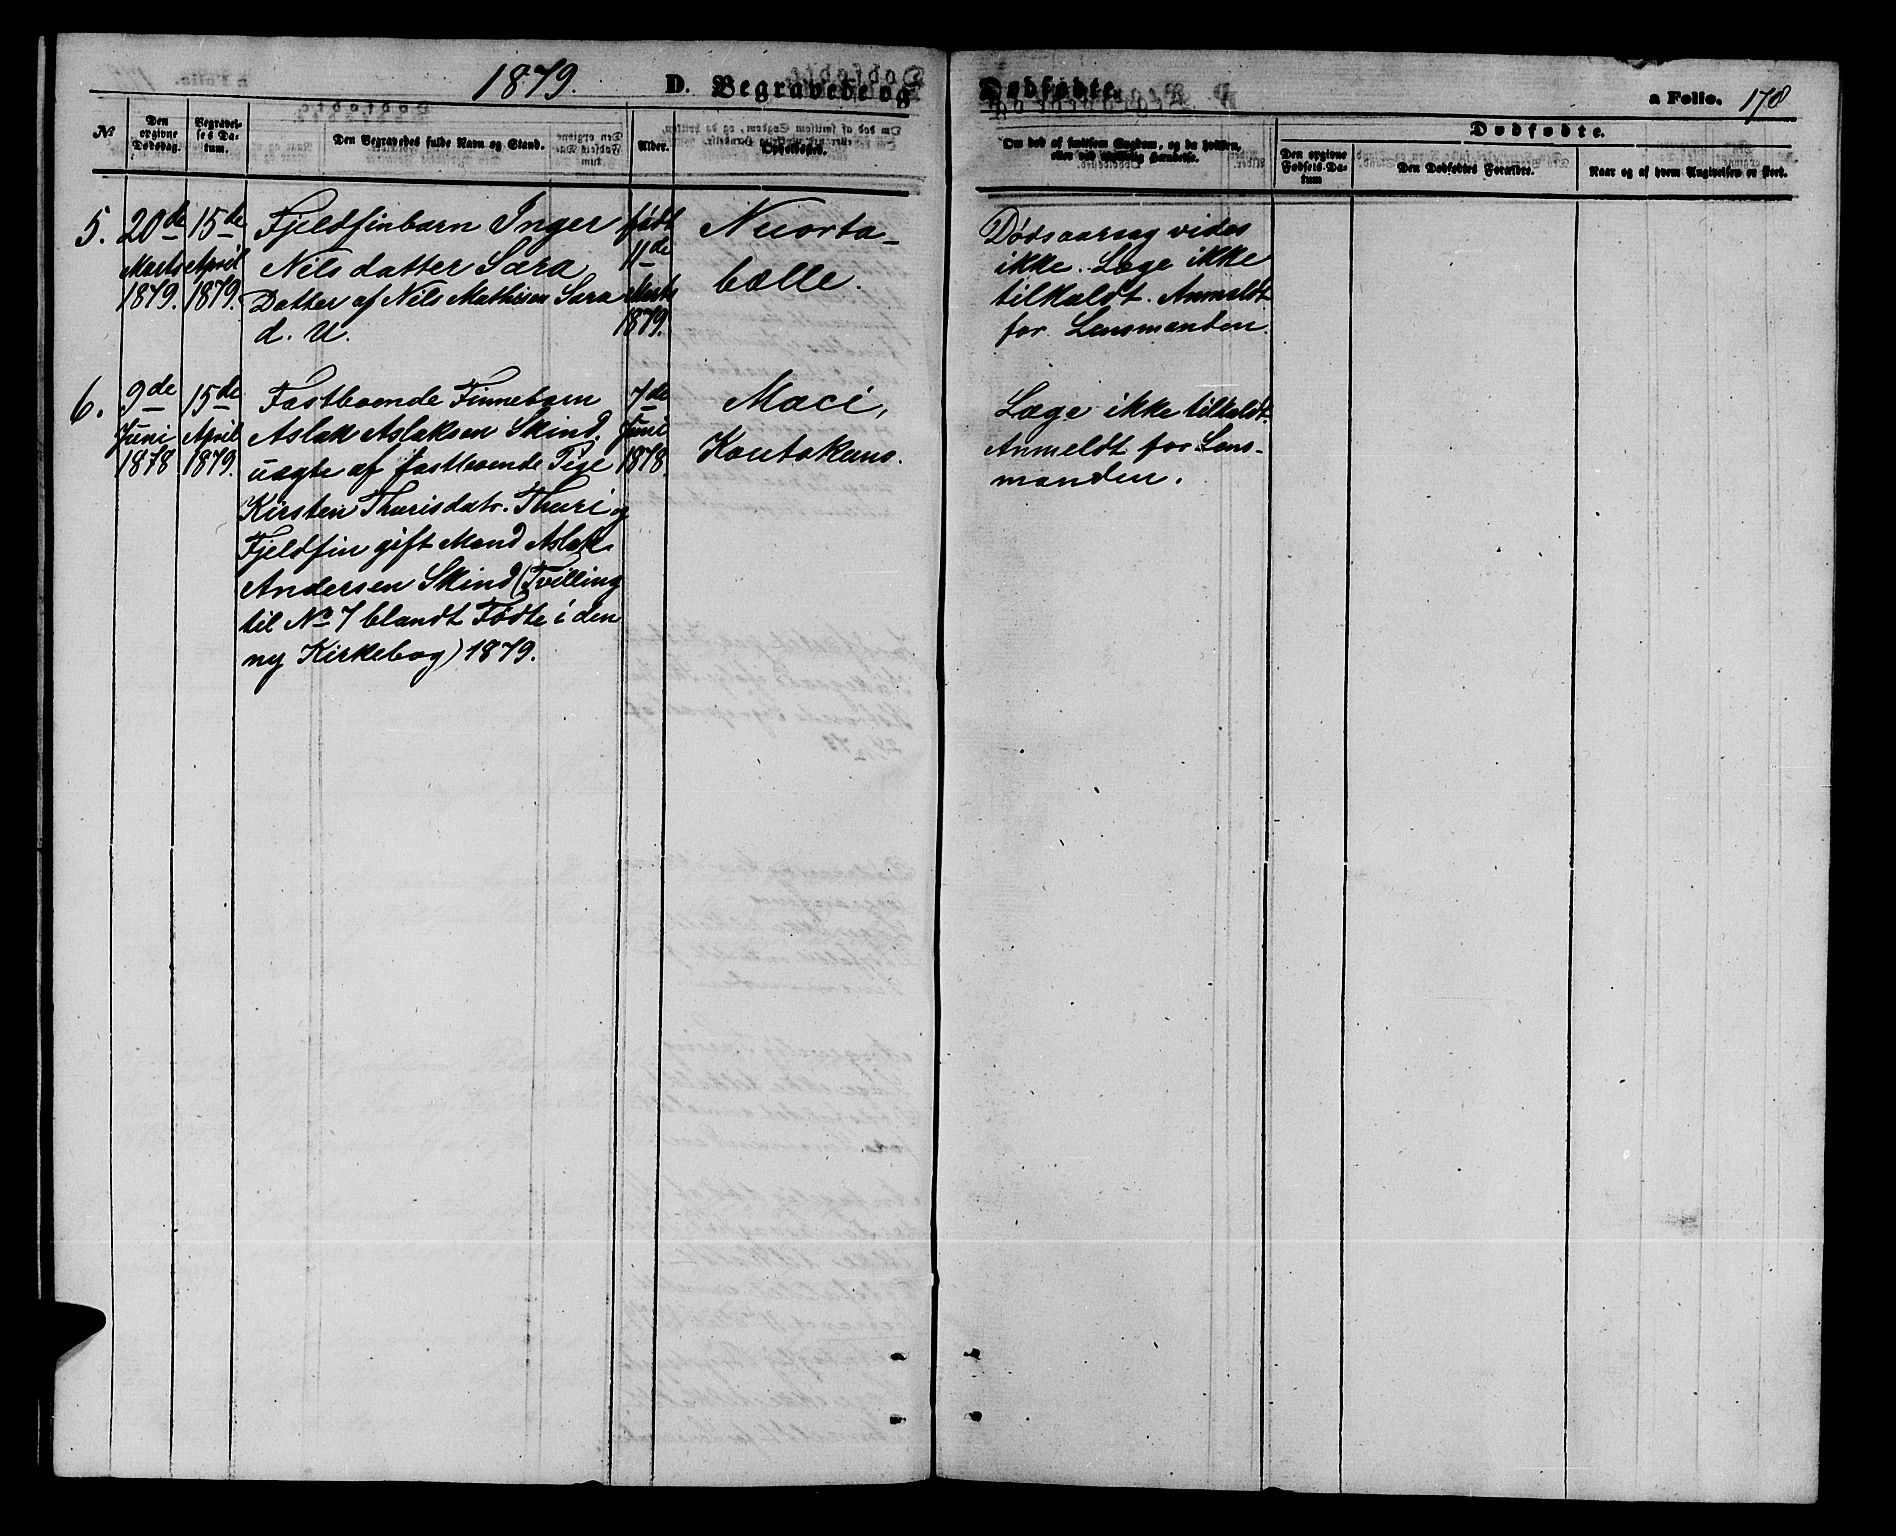 1879. D. Begravede og Dødfødte. a Folio. 178
No
Den opgivne Dødsdag.
Begravelses Datum.
Den Begravedes fulde Navn og Stand.
Alder.
Opholdssted.
Om død af smitsom Sygdom, og da hvilken, eller ved voldsom Hændelse.
Dødfødte.
Den opgivne Fødsels-Datum
Den Dødfødtes Forældre.
Naar og af hvem Angivelsen er skeet.
5.
20de
Marts
1879.
15de
April
1879.
Fjeldfinbarn Inger
Nilsdatter Sara
Datter af Nils Mathisen Sara
d. U.
født
11de
Marts
1879.
Nuorta-
bælle.
Dødsaarsag vides
ikke. Læge ikke
tilkaldt. Anmeldt
for Lensmanden.
6.
9de
Juni
1878
15de
April
1879.
Fastboende Finnebarn
Aslak Aslaksen Skind.
uægte af fastboende Pige
Kirsten Thurisdatr. Thuri og
Fjeldfin gift Mand Aslak
Andersen Skind (Tvilling
til No 7 blandt Fødte i den
ny Kirkebog) 1879.
7de
Juni
1878.
Maci,
Koutokeino.
Læge ikke tilkaldt.
Anmeldt for Lens-
manden.